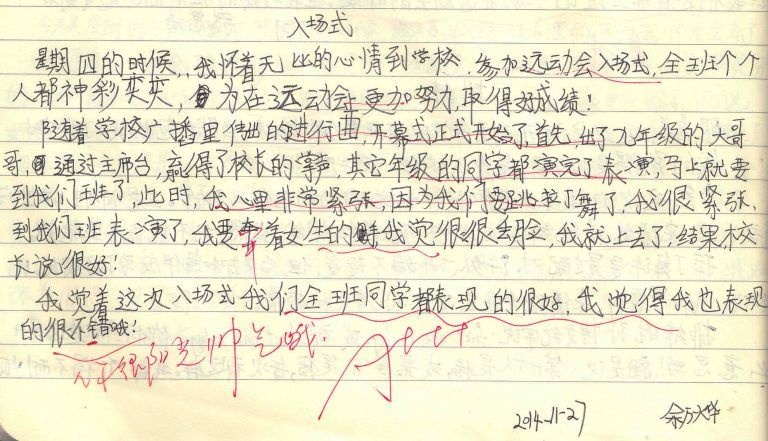 入场式
星期四的时候,我怀着无比的心情到学校,参加远动会入场式,全班个个
人都神彩奕奕,为在远动会上更加努力,取得好成绩!
随着学校广播里传出的进行曲,开幕式正式开始了首先出了九年级的大哥
哥,通过主席台,赢得了校长的掌声,其它年级的同学都演完了表演,马上就要
到我们班了,此时,我心里非常紧张,因为我们要跳拉丁舞了,我很紧张,
到我们班表演了,我要牵着女生的我觉很很丢脸,我就上去了,结果校
长说很好.
我觉着这次入场式我们全班同学都表现的很好,我觉得我也表现
的很不错哦!
你很阳光帅气哦!
A+++
2014-11-27